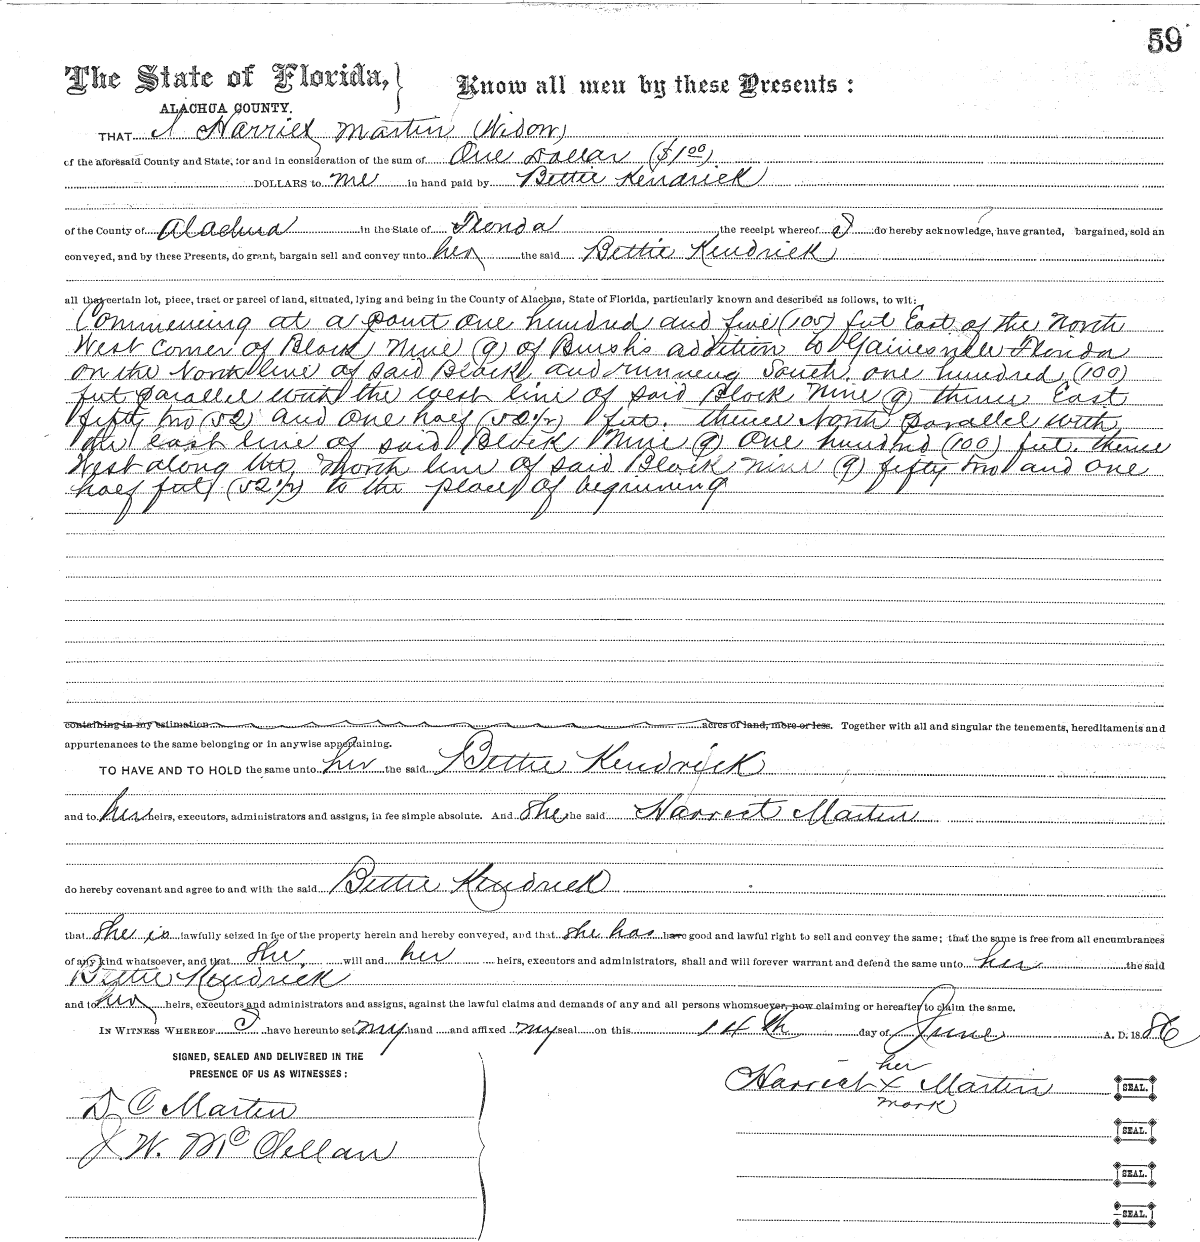 59
The State of Florida,
ALACHUA COUNTY.
Know all men by these Presents:
THAT I Harriet Martin (Widow)
of the aforesaid County and State, for and in consideration of the sum of One Dollar ($1.00)
DOLLARS to me in hand paid by Bettie Kendrick
of the County of Alachua in the State of Florida the receipt whereof I do hereby acknowledge, have granted, bargained, sold an
conveyed, and by these Presents, do grant, bargain sell and convey unto her the said Bettie Kendrick
all that certain lot, piece, tract or parcel of land, situated, lying and being in the County of Alachua, State of Florida, particularly known and described as follows, to wit:
Commencing at a point one hundred and five (105) feet East of the North
West corner of Block Nine (9) of Bush's addition to Gainesville Florida
on the North line of said Block and running South one hundred (100)
feet parallel with the west line of said Block Nine (9) thence East
fifty two (52) and one half (52 1/2) feet. thence North parallel with
the east line of said Block Nine (9) One hundred (100) feet. thence
West along the North line of said Block nine (9) fifty two and one
half feet (52 1/2) to the place of beginning
containing in my estimation acres of land, more or less. Together with all and singular the tenements, hereditaments and
appurtenances to the same belonging or in anywise appertaining.
TO HAVE AND TO HOLD the same unto her the said Bettie Kendrick
and to her heirs, executors, administrators and assigns, in fee simple absolute. And She the said Harriet Martin
do hereby covenant and agree to and with the said Bettie Kendrick
that she is lawfully seized in fee of the property herein and hereby conveyed, and that she has have good and lawful right to sell and convey the same; that the same is free from all encumbrances
of any kind whatsoever, and that she will and her heirs, executors and administrators, shall and will forever warrant and defend the same unto her the said
Bettie Kendrick
and to her heirs, executors and administrators and assigns, against the lawful claims and demands of any and all persons whomsoever, now claiming or hereafter to claim the same.
IN WITNESS WHEREOF I have hereunto set my hand and affixed my seal on this 14th day of June A. D. 1886
SIGNED, SEALED AND DELIVERED IN THE
PRESENCE OF US AS WITNESSES:
her
Harriet x Martin SEAL.
mark
D C Martin
SEAL.
J. W. McClellan
SEAL.
SEAL.